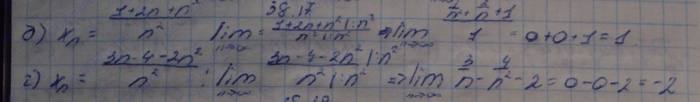 38.17
д) xₙ = (1+2n+n²)/n² lim n→∞ = (1+2n+n² |:n²)/(n² |:n²) => lim n→∞ (1/n²+2/n+1)/1 = 0+0+1=1
г) xₙ = (3n-4-2n²)/n² : lim n→∞ = (3n-4-2n² |:n²)/(n² |:n²) => lim n→∞ 3/n - 4/n² - 2 = 0-0-2=-2